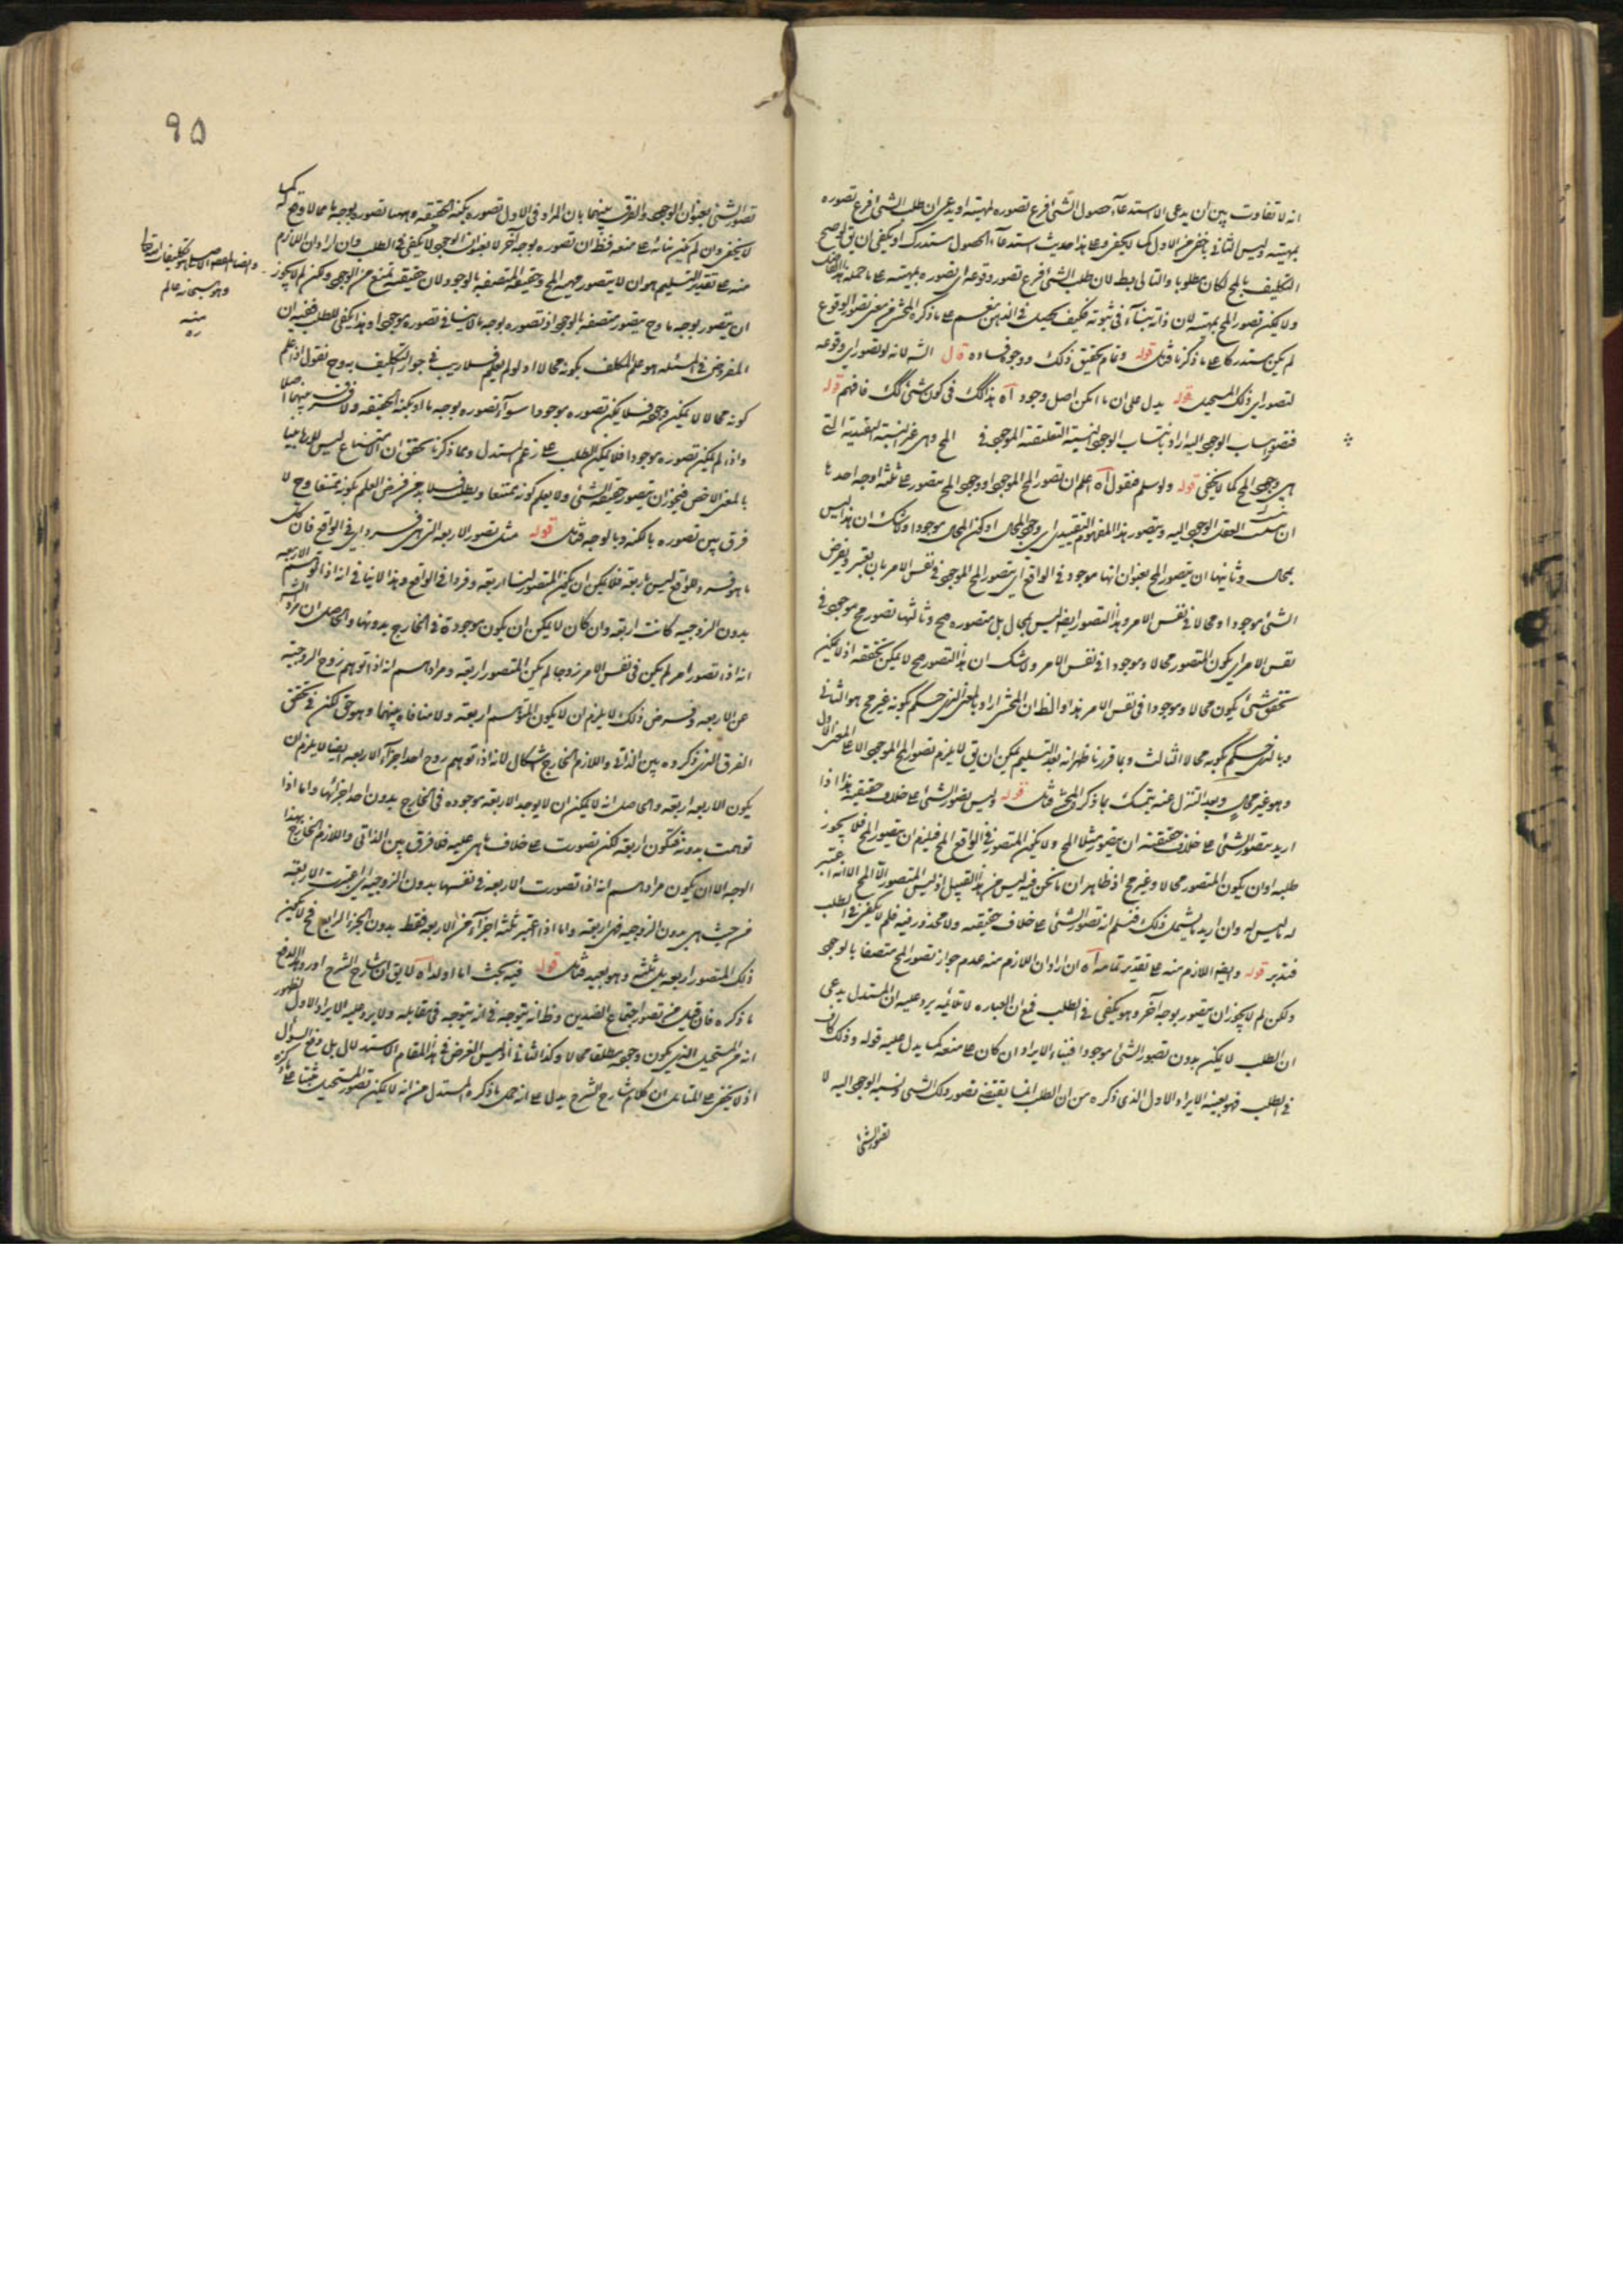 انه لا تفاوت بين ان يدعى الاستدعاء حصول الشئ فرع تصوره بمهيته او يدعى ان طلب الشئ فرع تصوره
بمهيته وليس الثانى باخفى من الاول كما لا يخفى وعلى هذا حديث استدعاء الحصول مستدرك او يكفى ان يق لو صح
التكليف بالمح لكان مطلوبا والتالى بط لان طلب الشئ فرع تصور وقوعه اى تصوره بمهيته على ما حمله
ولا يمكن تصور المح بمهيته لان ذاته ينافى ثبوته فكيف يحصل فى الذهن نعم على ما ذكره المحشى من معنى تصور الوقوع
لم يكن مستدركا على ما ذكرنا فتامل قوله وتمام تحقيق ذلك ووجوه فساده قال الشه لانه لو تصور اى وقوعه
لتصور اى ذلك المستحيل قوله يدل على ان ما امكن اصل وجوده آه بذلك فى كون شئ كك فافهم قوله
فتصور انتساب الوجود اليه اراد بانتساب الوجود النسبة التعليقية الموجود فى المح وهى غير النسبة التقييدية التى
هى وجود المح كما لا يخفى قوله ولو سلم فنقول آه اعلم ان تصور المح الموجود او وجود المح يتصور على ثلثة اوجه احدها
ان ينسب العقل الوجود اليه ويتصور هذا المفهوم التقييدى اى وجود المحال او كون المحال موجودا ولا شك ان هذا ليس
بمحال وثانيها ان يتصور المح بعنوان انها موجود فى الواقع اى يتصور المح الموجود فى نفس الامر بان يعتبر ويفرض
الشئ موجودا ومحالا فى نفس الامر وهذا التصور ايضا ليس بمحال بل متصوره مح وثالثها تصور مح موجود فى
نفس الامر اى يكون المتصور محالا وموجودا فى نفس الامر ولا شك ان هذا التصور مح لا يمكن تحققه اذ لا يمكن
تحقق شئ يكون محالا وموجودا فى نفس الامر هذا والظ ان المحشى اراد بالمعنى الذى حكم بكونه غير مح هو الثانى
وبالذى حكم بكونه محالا الثالث وبما قررنا ظهر انه بعد التسليم يمكن ان يق لا يلزم تصور المح الموجود الا على المعنى الاول
وهو غير محال وبعد التنزل عنه يتمسك بما ذكره المحشى فتامل قوله وليس تصور الشئ على خلاف حقيقته هذا اذا
اريد بتصور الشئ على خلاف حقيقته ان يتصور مثلا المح ولا يكون المتصور فى الواقع المح فيلزم ان يتصور المح فلا يجوز
طلبه او ان يكون المتصور محالا وغير مح اذ ظاهر ان ما نحن فيه ليس من هذا القبيل اذ ليس المتصور الا المح الا انه اعتبر
له ما ليس له وان اريد ما يشمل ذلك فنسلم انه تصور الشئ على خلاف حقيقته ولا محذور فيه فلم لا يكفى فى الطلب
فتدبر قوله وايضا اللازم منه على تقدير تمامه آه ان اراد ان اللازم منه عدم جواز تصور المح متصفا بالوجود
ولكن لم لا يجوز ان يتصور بوجه آخر وهو يكفى فى الطلب فمع ان العباره لا تلائمه يرد عليه ان المستدل يدعى
ان الطلب لا يمكن بدون تصور الشئ موجودا فبناء الايراد ان كان على منعه كما يدل عليه قوله وذلك كاف
فى الطلب فهو بعينه الايراد الاول الذى ذكره من ان الطلب انما يقتضى تصور ذلك الشئ ونسبة الوجود اليه لا
تصور الشئ
٩٥
تصور الشئ بعنوان الوجود والفرق بينهما بان المراد فى الاول تصوره بكنه الحقيقة وههنا تصوره بوجه ما مما لا وجه له كما
لا يخفى وان لم يكن بناؤه على منعه فظ ان تصوره بوجه آخر لا بعنوان الوجود لا يكفى فى الطلب وان اراد ان اللازم
منه على تقدير التسليم هو ان لا يتصور مهية المح وحقيقته المتصفة بالوجود لان حقيقته تمنع من الوجود ولكن لم لا يجوز
ان يتصور بوجه ما وح يتصور متصفه بالوجود اذ تصوره بوجه ما لا ينافى تصوره موجودا وهذا يكفى للطلب ففيه ان
المفروض فى المسئلة هو علم المكلف بكونه محالا اذ لو لم يعلم فلا ريب فى جواز التكليف به وح نقول اذا علم
كونه محالا لا يمكن وجوده فلا يمكن تصوره موجودا سواء تصوره بوجه ما او بكنه الحقيقة ولا فرق بينهما اصلا
واذا لم يمكن تصوره موجودا فلا يمكن الطلب على زعم المستدل وبما ذكرنا تحقق ان الامتناع ليس لازما بينا
بالمعنى الاخص فيجوز ان يتصور حقيقة الشئ ولا يعلم كونه ممتنعا ويطلب فلا بد من فرض العلم بكونه ممتنعا وح لا
فرق بين تصوره بالكنه وبالوجه فتامل قوله مثل تصور الاربعة التى هى فرد اى فى الواقع فان كل
ما هو فرد فى الواقع ليس باربعة فلا يمكن ان يكون المتصور لنا اربعة وفردا فى الواقع وهذا لا ينافى انه اذا توهم الاربعة
بدون الزوجية كانت اربعة وان كان لا يمكن ان يكون موجودة فى الخارج بدونها والحاصل ان مراد الشه
انه اذا تصور امر لم يكن فى نفس الامر زوجا لم يكن المتصور اربعة ومرادهم انه اذا توهم زوج الزوجية
عن الاربعة وفرض ذلك لا يلزم ان لا يكون المتوهم اربعة ولا منافاة بينهما وهو حق لكن فى تحقق
الفرق الذى ذكروه بين الذاتى واللازم الخارج اشكال لانه اذا توهم زوج احد اجزاء الاربعة ايضا لا يلزم ان
يكون الاربعة اربعة والحاصل انه لا يمكن ان لا يوجد الاربعة موجوده فى الخارج بدون احد اجزائها واما اذا
توهمت بدونه فتكون اربعة لكن تصورت على خلاف ما هى عليه فلا فرق بين الذاتى واللازم الخارج بهذا
الوجه الا ان يكون مرادهم انه اذا تصورت الاربعة فى نفسها بدون الزوجية اى اعتبرت الاربعة
من حيث هى بدون الزوجية فهى اربعة واما اذا اعتبر ثلثة اجزاء من الاربعة فقط بدون الجزء الرابع فح لا يكون
ذلك المتصور اربعة بل ثلثة وهو بعيد فتامل قوله فيه بحث اما اولا آه لا يق ان شارح الشرح اورد لدفع
ما ذكره فان قيل من تصور اجتماع الضدين وظ انه يتوجه فى مقابله ولا يرد عليه الايراد الاول لظهور
انه من المستحيل الذى يكون وجوده مطلقا محالا وكذا الثانى اذ ليس الغرض فى هذا المقام الاستدلال بل دفع السؤال
اذ لا يخفى على المتامل ان كلام شارح الشرح يدل على انه حمل ما ذكره المستدل من انه لا يمكن تصور المستحيل مثبتا على ما ذكره
وهو سبحانه عالم
منه
ره